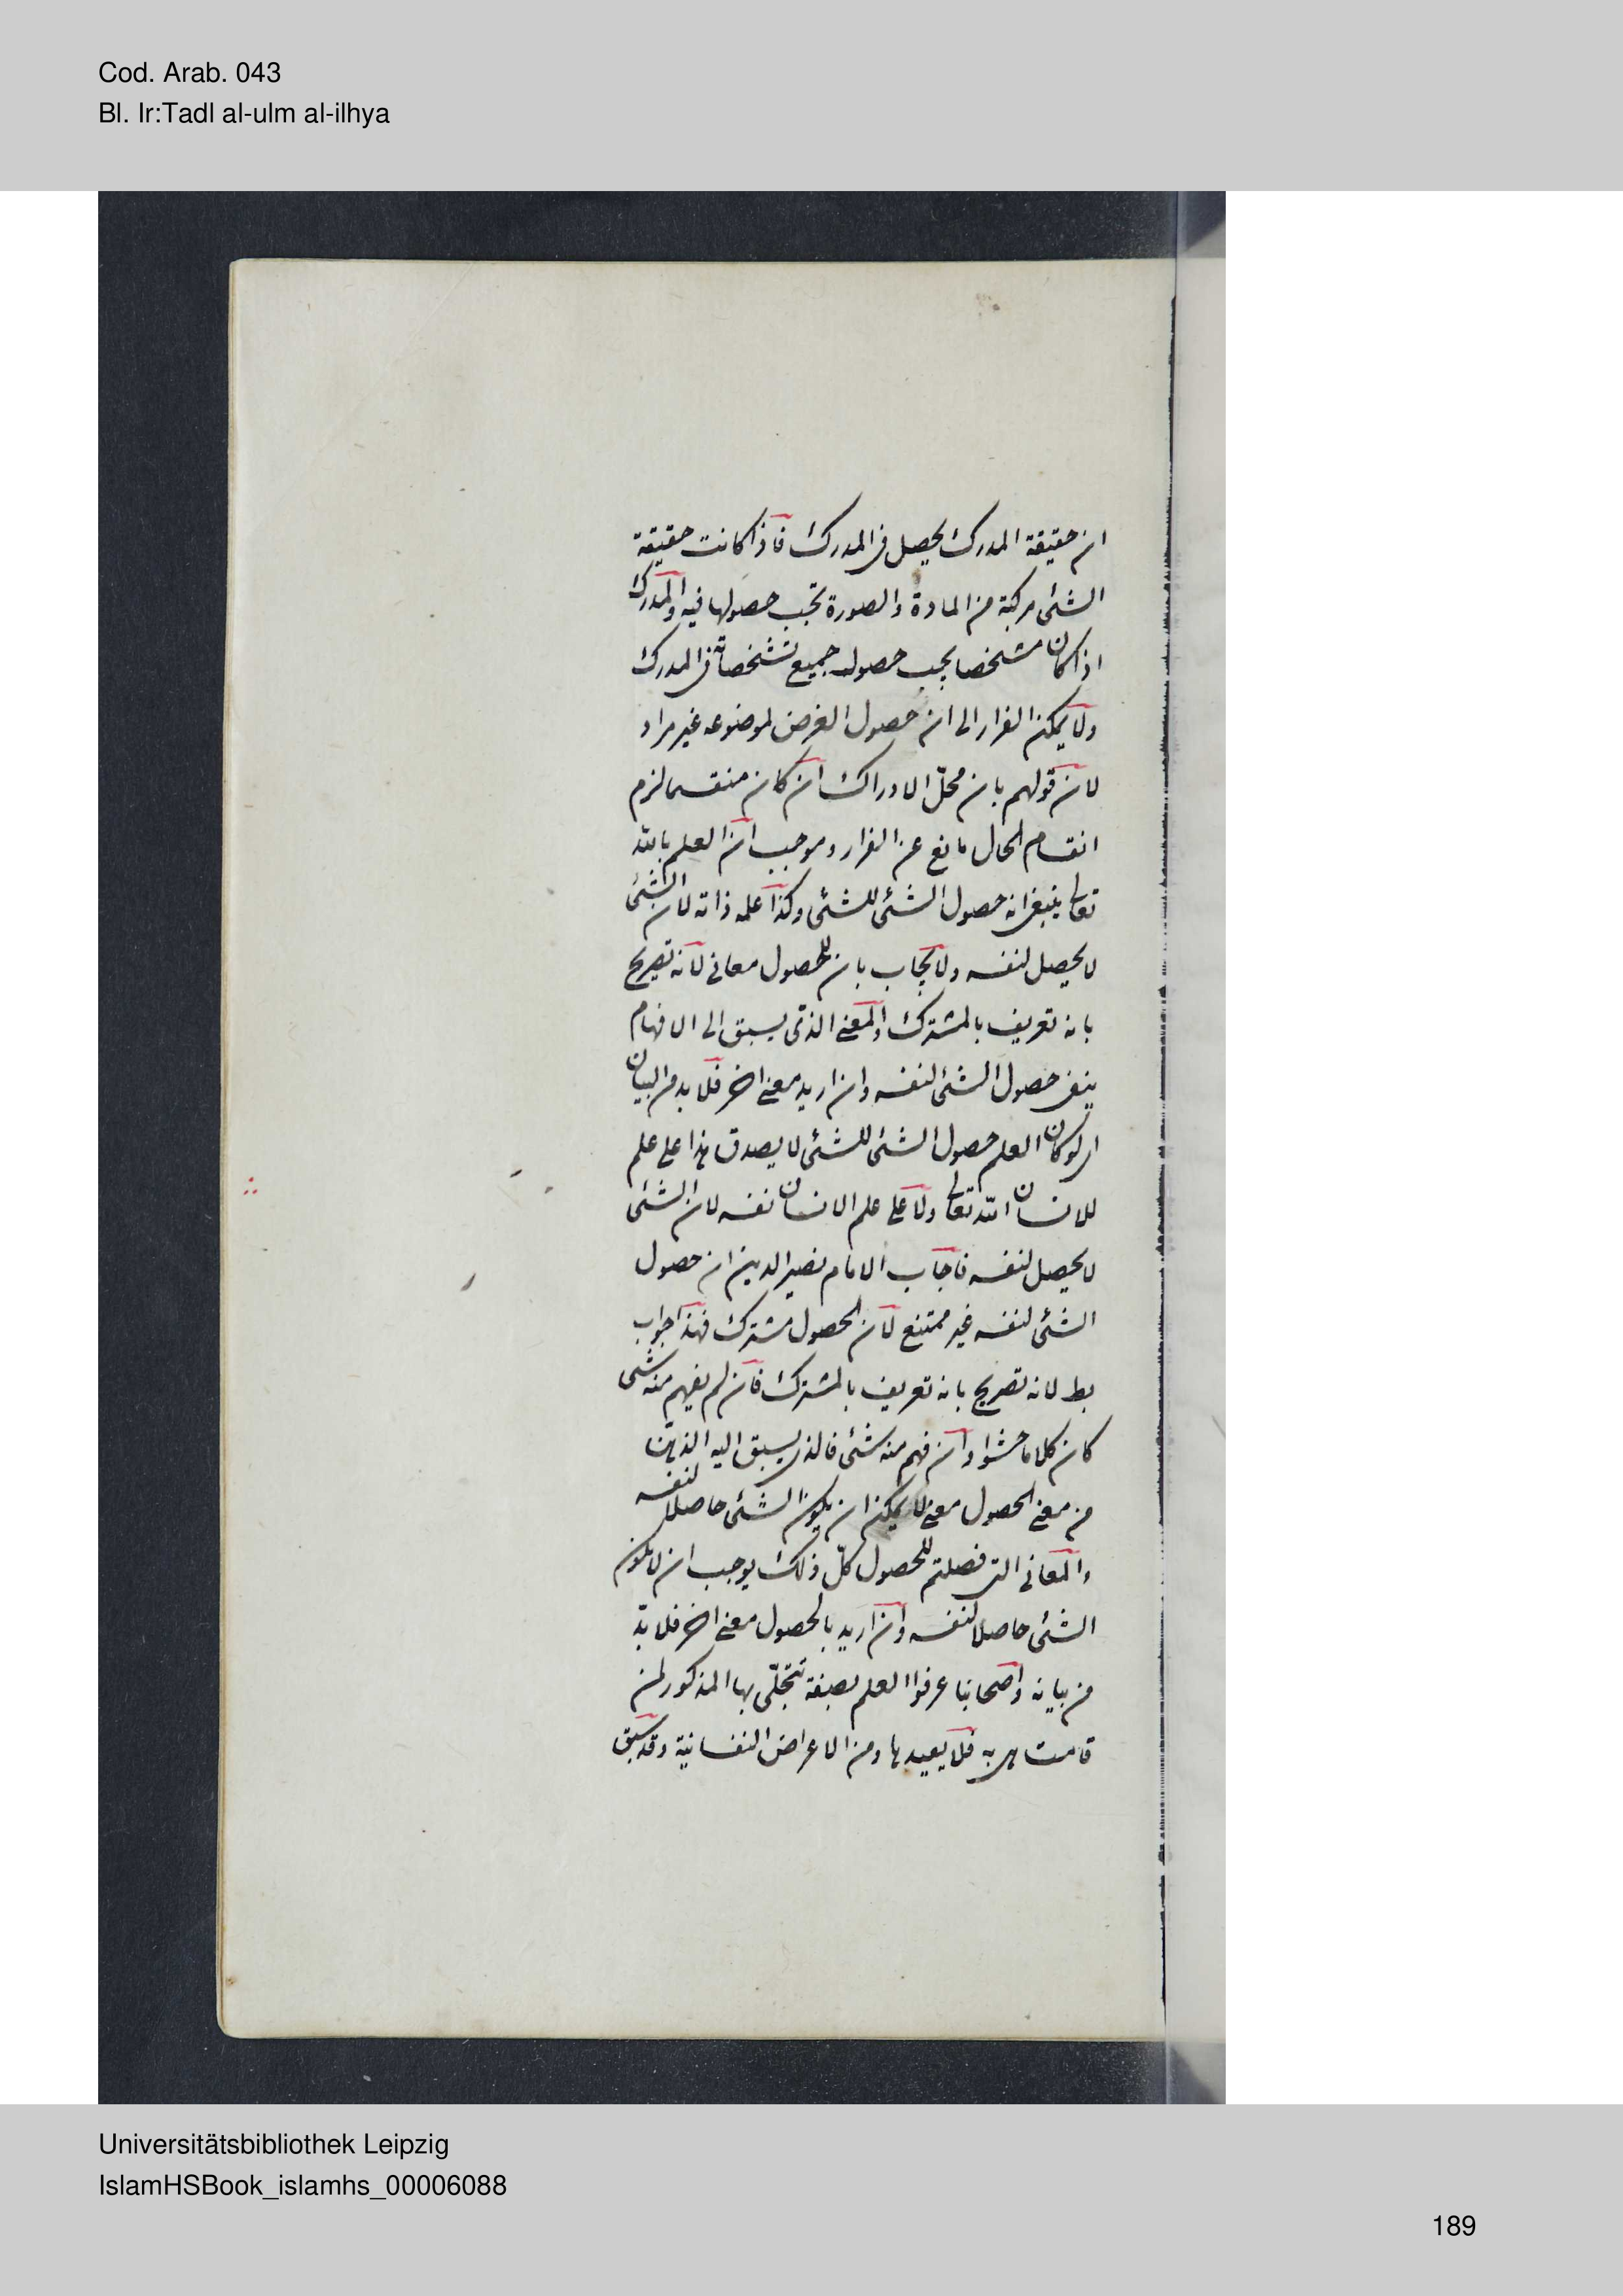 Cod. Arab. 043
Bl. Ir:Tadl al-ulm al-ilhya
ان حقيقة المدرك يحصل فى المدرك فاذا كانت حقيقة
الشئ مركبة من المادة والصورة تجب حصولها فيه والمدرك
اذا كان مشخصا يجب حصول جميع تشخصاته فى المدرك
ولا يمكن الفرار الى ان حصول العرض لموضوعه غير مراد
لان قولهم بان محلّ الادراك ان كان منقسما لزم
انقسام الحال مانع عن الفرار وموجب ان العلم بالله
تعالى ينبغى انه حصول الشئ للشئ وكذا علمه ذاته لان الشئ
لا يحصل لنفسه ولا يجاب بان للحصول معانى لانه تصريح
بانه تعريف بالمشترك والمعنى الذى يسبق الى الافهام
ينفى حصول الشئ لنفسه وان اريد معنى اخر فلا بد من البيان
اى لو كان العلم حصول الشئ للشئ لا يصدق هذا على علم
للانسان الله تعالى ولا على علم الانسان نفسه لان الشئ
لا يحصل لنفسه فاجاب الامام نصير الدين ان حصول
الشئ لنفسه غير ممتنع لان الحصول مشترك فهذا جواب
بط لانه تصريح بانه تعريف بالمشترك فان لم يفهم منه شئ
كان كلاما حشوا وان فهم منه شئ فالذى يسبق اليه الذهن
من معنى الحصول معنى لا يمكن ان يكون الشئ حاصلا لنفسه
والمعانى التى فصلتم للحصول كلّ ذلك يوجب ان لا يكون
الشئ حاصلا لنفسه وان اريد بالحصول معنى اخر فلا بدّ
من بيانه واصحابنا عرفوا العلم بصفة تتجلّى بها المذكور لمن
قامت هى به فلا يعيدها ومن الاعراض النفسانية وقد سبق
Universitätsbibliothek Leipzig
IslamHSBook_islamhs_00006088
189